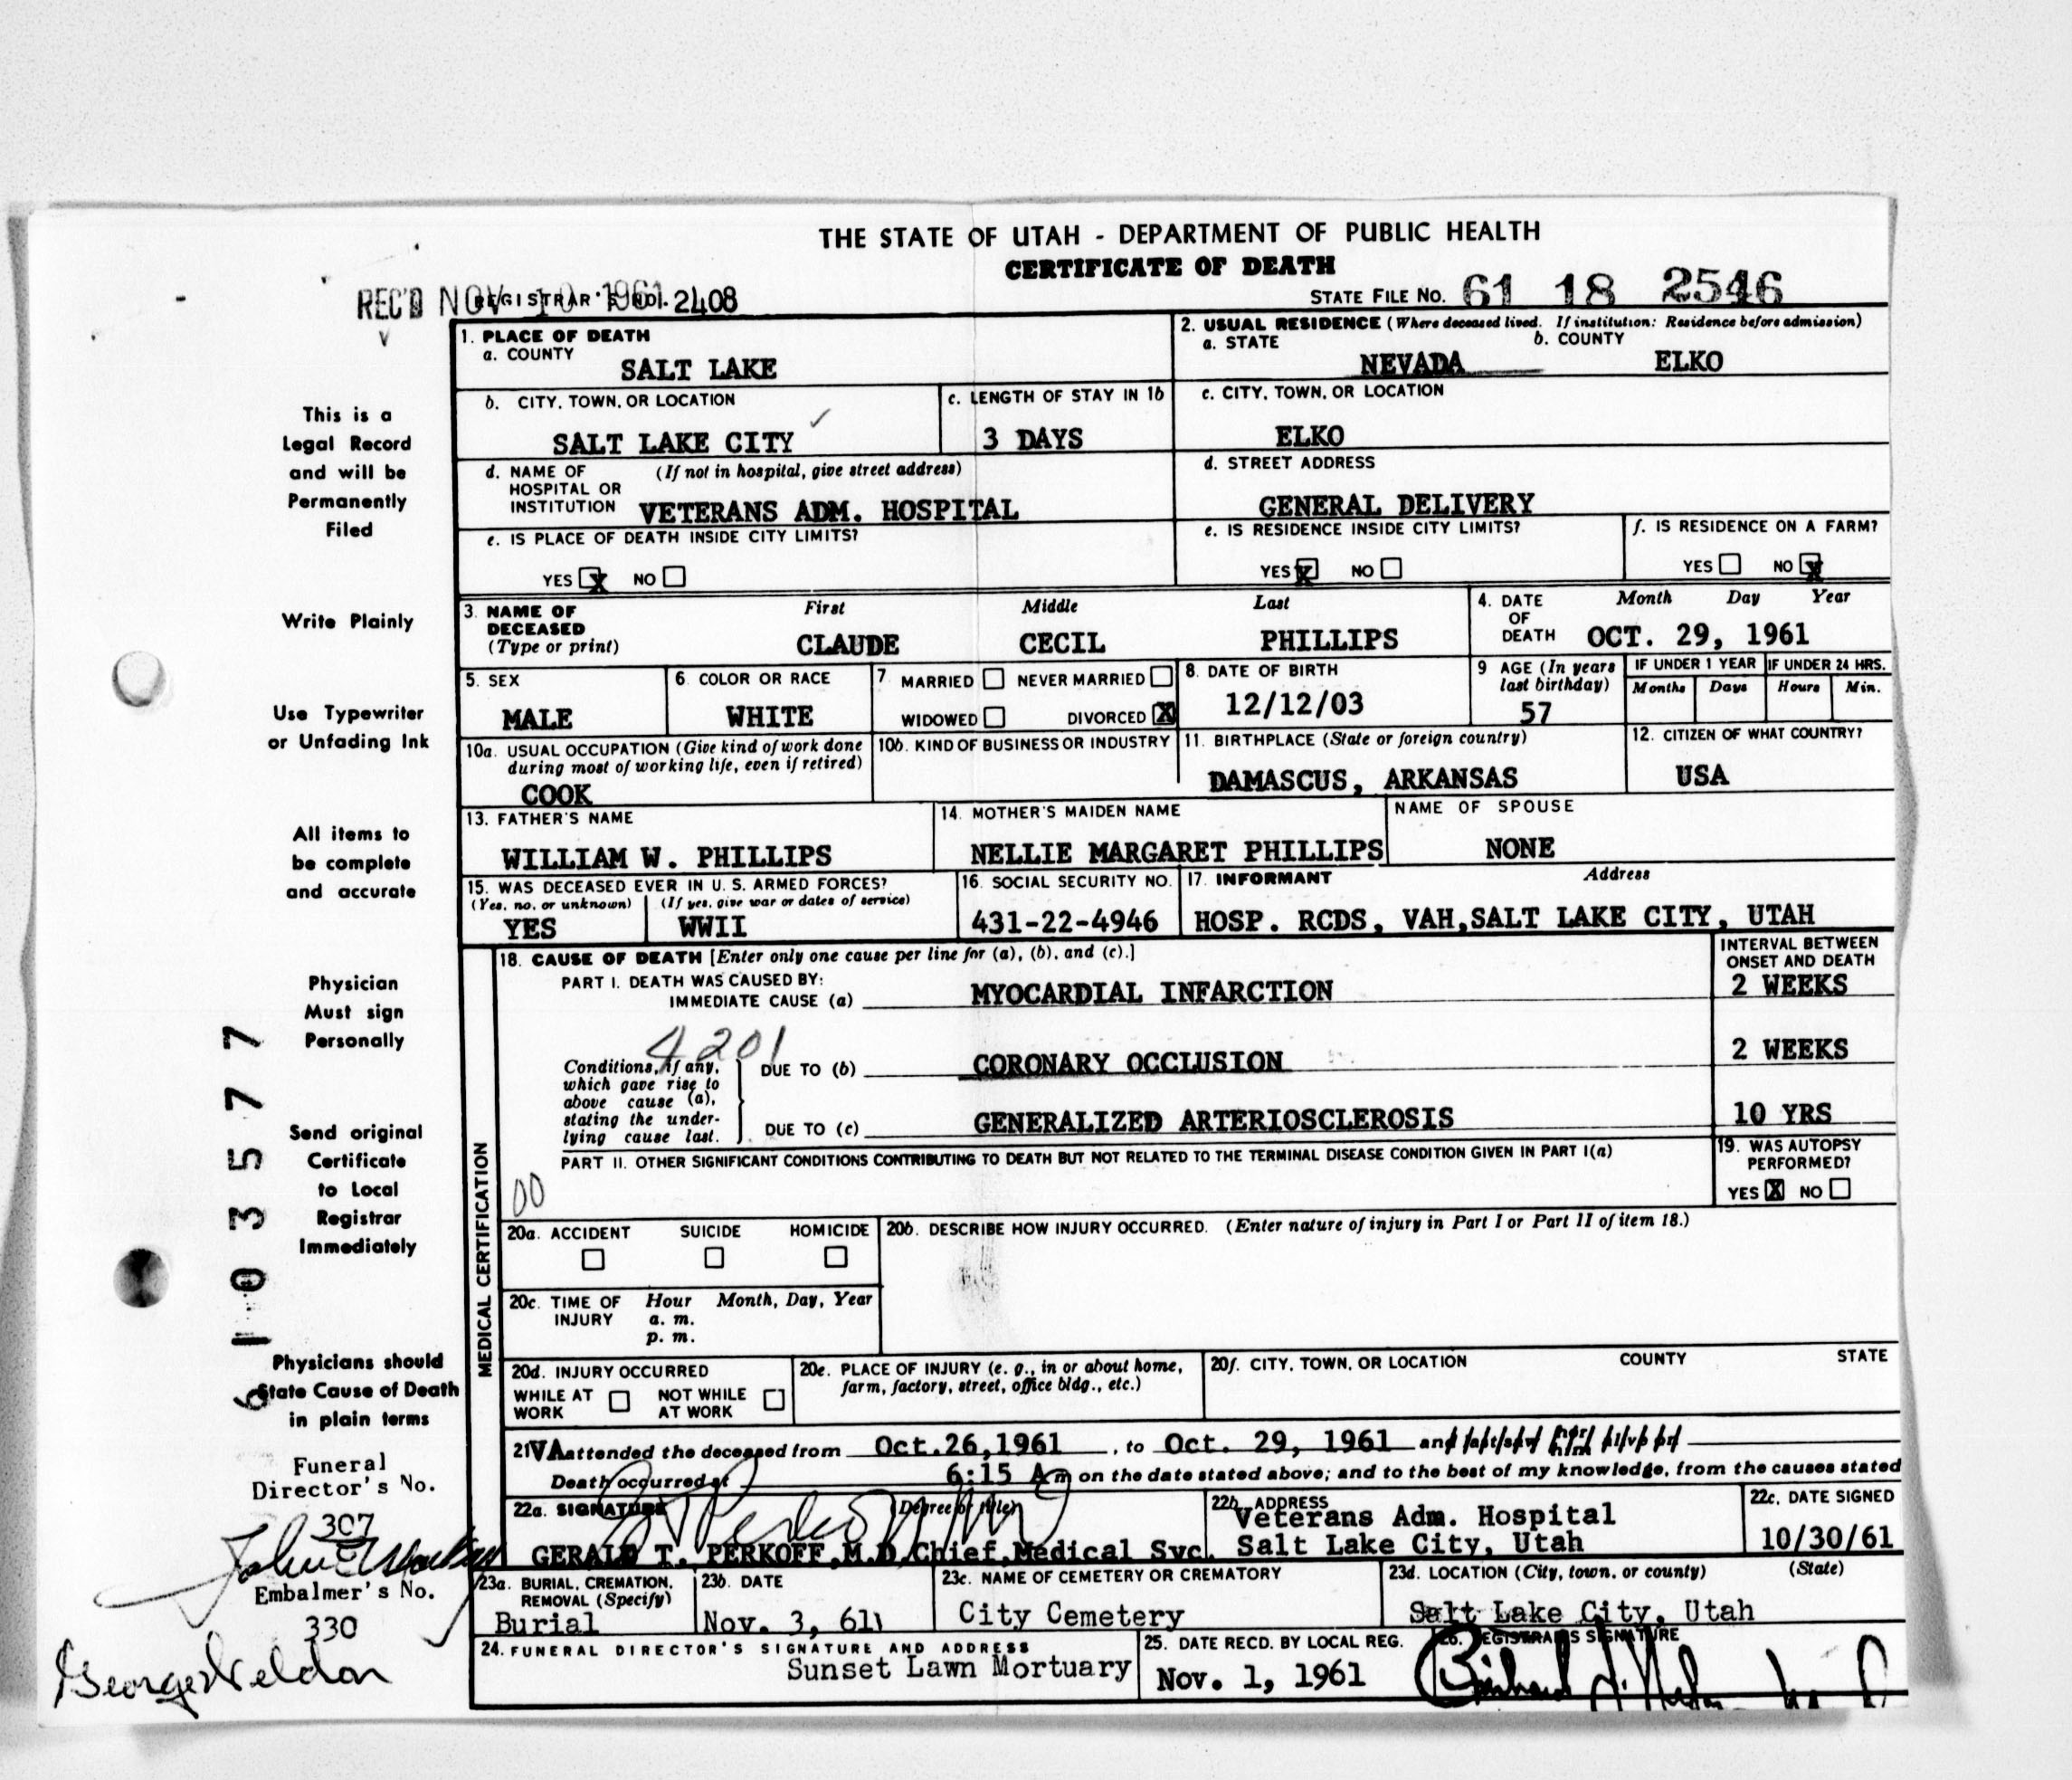 THE STATE OF UTAH - DEPARTMENT OF PUBLIC HEALTH
CERTIFICATE OF DEATH
REC'D NOV 10 1961
REGISTRAR'S NO. 2408
STATE FILE NO. 61 18 2546
1. PLACE OF DEATH
a. COUNTY
SALT LAKE
2. USUAL RESIDENCE (Where deceased lived. If institution: Residence before admission)
a. STATE NEVADA
b. COUNTY ELKO
b. CITY, TOWN, OR LOCATION
SALT LAKE CITY
c. LENGTH OF STAY IN 1b
3 DAYS
c. CITY, TOWN, OR LOCATION
ELKO
d. NAME OF (If not in hospital, give street address)
HOSPITAL OR
INSTITUTION VETERANS ADM. HOSPITAL
d. STREET ADDRESS
GENERAL DELIVERY
e. IS PLACE OF DEATH INSIDE CITY LIMITS?
YES X NO
e. IS RESIDENCE INSIDE CITY LIMITS?
YES X NO
f. IS RESIDENCE ON A FARM?
YES NO X
3. NAME OF
DECEASED
(Type or print)
First Middle Last
CLAUDE CECIL PHILLIPS
4. DATE
OF
DEATH
Month Day Year
OCT. 29, 1961
5. SEX
MALE
6. COLOR OR RACE
WHITE
7. MARRIED NEVER MARRIED
WIDOWED DIVORCED X
8. DATE OF BIRTH
12/12/03
9 AGE (In years
last birthday)
57
IF UNDER 1 YEAR
Months Days
IF UNDER 24 HRS.
Hours Min.
10a. USUAL OCCUPATION (Give kind of work done
during most of working life, even if retired)
COOK
10b. KIND OF BUSINESS OR INDUSTRY
11. BIRTHPLACE (State or foreign country)
DAMASCUS, ARKANSAS
12. CITIZEN OF WHAT COUNTRY?
USA
13. FATHER'S NAME
WILLIAM W. PHILLIPS
14. MOTHER'S MAIDEN NAME
NELLIE MARGARET PHILLIPS
NAME OF SPOUSE
NONE
15. WAS DECEASED EVER IN U. S. ARMED FORCES?
(Yes, no, or unknown) (If yes, give war or dates of service)
YES WWII
16. SOCIAL SECURITY NO.
431-22-4946
17. INFORMANT Address
HOSP. RCDS, VAH,SALT LAKE CITY, UTAH
MEDICAL CERTIFICATION
18. CAUSE OF DEATH [Enter only one cause per line for (a), (b), and (c).]
INTERVAL BETWEEN
ONSET AND DEATH
PART I. DEATH WAS CAUSED BY:
IMMEDIATE CAUSE (a) MYOCARDIAL INFARCTION 2 WEEKS
4201
Conditions, if any,
which gave rise to
above cause (a),
stating the under-
lying cause last.
DUE TO (b) CORONARY OCCLUSION 2 WEEKS
DUE TO (c) GENERALIZED ARTERIOSCLEROSIS 10 YRS
PART II. OTHER SIGNIFICANT CONDITIONS CONTRIBUTING TO DEATH BUT NOT RELATED TO THE TERMINAL DISEASE CONDITION GIVEN IN PART I(a)
00
19. WAS AUTOPSY
PERFORMED?
YES X NO
20a. ACCIDENT SUICIDE HOMICIDE
20b. DESCRIBE HOW INJURY OCCURRED. (Enter nature of injury in Part I or Part II of item 18.)
20c. TIME OF
INJURY
Hour Month, Day, Year
a. m.
p. m.
20d. INJURY OCCURRED
WHILE AT
WORK
NOT WHILE
AT WORK
20e. PLACE OF INJURY (e. g., in or about home,
farm, factory, street, office bldg., etc.)
20f. CITY, TOWN, OR LOCATION COUNTY STATE
21 VA attended the deceased from Oct.26,1961, to Oct. 29, 1961 and
Death occurred at 6:15 A m on the date stated above; and to the best of my knowledge, from the causes stated
22a. SIGNATURE (Degree or title)
GERALD T. PERKOFF,M.D.Chief,Medical Svc.
22b. ADDRESS
Veterans Adm. Hospital
Salt Lake City, Utah
22c. DATE SIGNED
10/30/61
23a. BURIAL, CREMATION,
REMOVAL (Specify)
Burial
23b. DATE
Nov. 3, 61
23c. NAME OF CEMETERY OR CREMATORY
City Cemetery
23d. LOCATION (City, town, or county) (State)
Salt Lake City, Utah
24. FUNERAL DIRECTOR'S SIGNATURE AND ADDRESS
Sunset Lawn Mortuary
25. DATE RECD. BY LOCAL REG.
Nov. 1, 1961
26. REGISTRAR'S SIGNATURE
This is a
Legal Record
and will be
Permanently
Filed
Write Plainly
Use Typewriter
or Unfading Ink
All items to
be complete
and accurate
Physician
Must sign
Personally
Send original
Certificate
to Local
Registrar
Immediately
Physicians should
State Cause of Death
in plain terms
61 03577
Funeral
Director's No.
307
Embalmer's No.
330
George Weldon